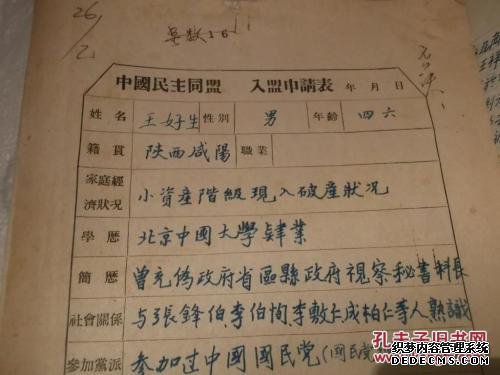 26/乙
中國民主同盟 入盟申請表 年 月 日
姓名 王好生 性别 男 年齡 四六
籍貫 陕西咸陽 職業
家庭經濟狀况 小資産階級現入破産狀况
學歷 北京中國大學肄業
簡歷 曾充偽政府省區縣政府視察秘書科長
社會關係 与張鋒伯李伯恂李敷仁成柏仁等人熟識
參加黨派 参加过中國國民党(國民
孔夫子旧书网